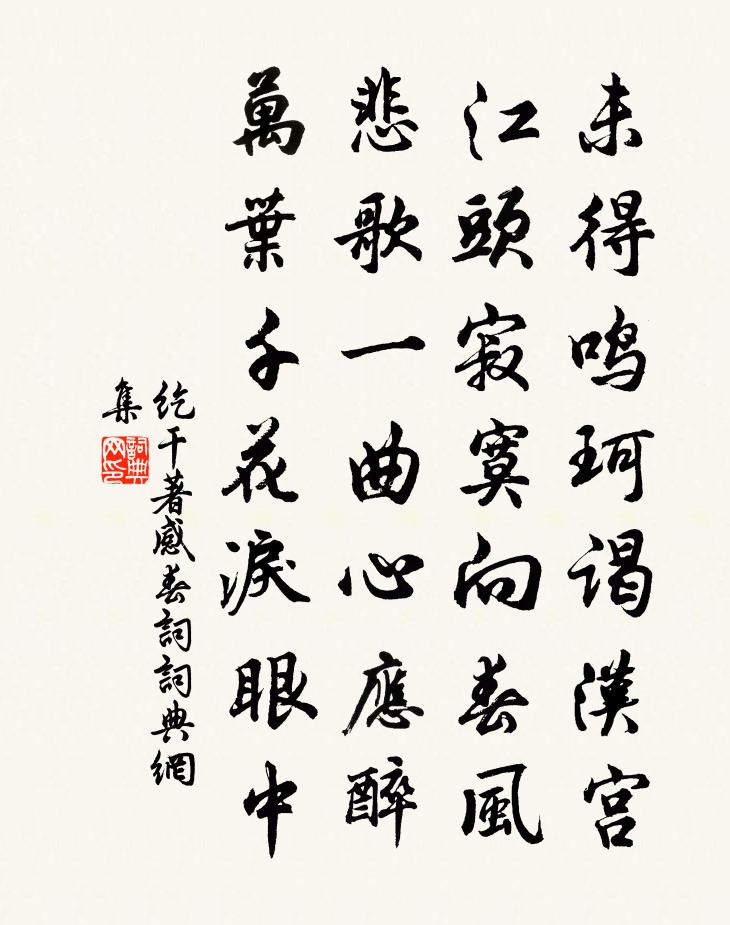 未得鳴珂謁漢宮
江頭寂寞向春風
悲歌一曲心應醉
萬葉千花淚眼中
紇干著感春詞詞典網
集
詞典網印